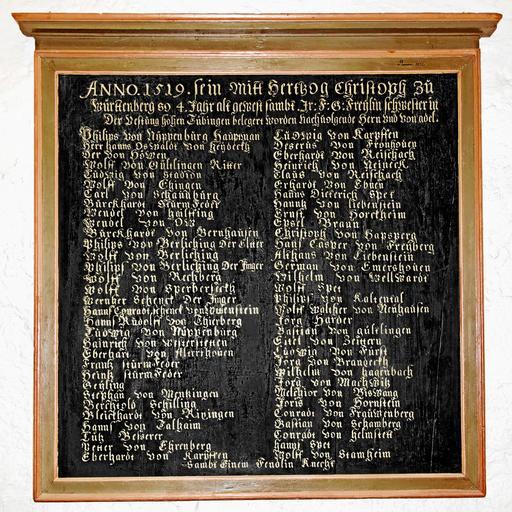 ANNO.1519. sein Mitt Hertzog Christoph Zů
Würtenberg so 4. Jahr alt gewest sambt Ir: F: G: Freylin schwester in
Der Vestung hohen Tübingen belegert worden Nachvolgende Hern Und von adel.
Philips von Nippenburg Hauptman
Herr Hanns Osswaldt von
Der von Höwen
Wolff von Gültlingen Ritter
Ludwig von Stadion
Wolff von Ehingen
Carl von Schauburg
Burckhardt Sturmfeder
Wendel von Hailfing
Wendel von Ow
Burckhardt von Bernhausen
Philips von Berliching Der Elter
Wolff von Berliching
Philips von Berliching Der Jinger
Wolff von Rechberg
Wolff von Sperberseckh
Wernher Schenck Der Jinger
Hanns Conradt schenck von Winenstein
Hanns Rudolff von Thierberg
Ludwig von Nippenburg
Hainrich von Westerstetten
Eberhart von
Frantz sturmfeder
Heintz sturmfeder
Stephan von Menkingen
Berchtold Schilling
Bleickhardt von Rixingen
Hanns von Talhaim
Lutz
Petter von Ehrenberg
Eberhardt von Karpffen
Ludwig von Karpffen
von Fronhoven
Eberhardt von Reischach
Heinrich von Reineck
Claus von Reischach
Erhardt von
Hanns Dieterich Spet
Hanns von liebenstein
Ernst von Horckheim
Eytel Braun
Christoph von Hapsperg
Hans Casper von Freyberg
von Liebenstein
German von Emershoven
Wilhelm von Wellwardt
Wolff Spet
Philips von Kaltental
Wolff Walther von Neuhausen
Jorg Harder
Bastian von gültlingen
Eitel von
Ludwig von Fürst
Jorg von Brandeck
Wilhelm von hagenbach
Jorg von Machwitz
Melchior von
Joris von Hornstein
Conradt von Frauenberg
Bastian von Schamberg
Conradt von helmstett
hanns Spet
Wolff von Stamheim
Sambt Einem Fendlin Knecht